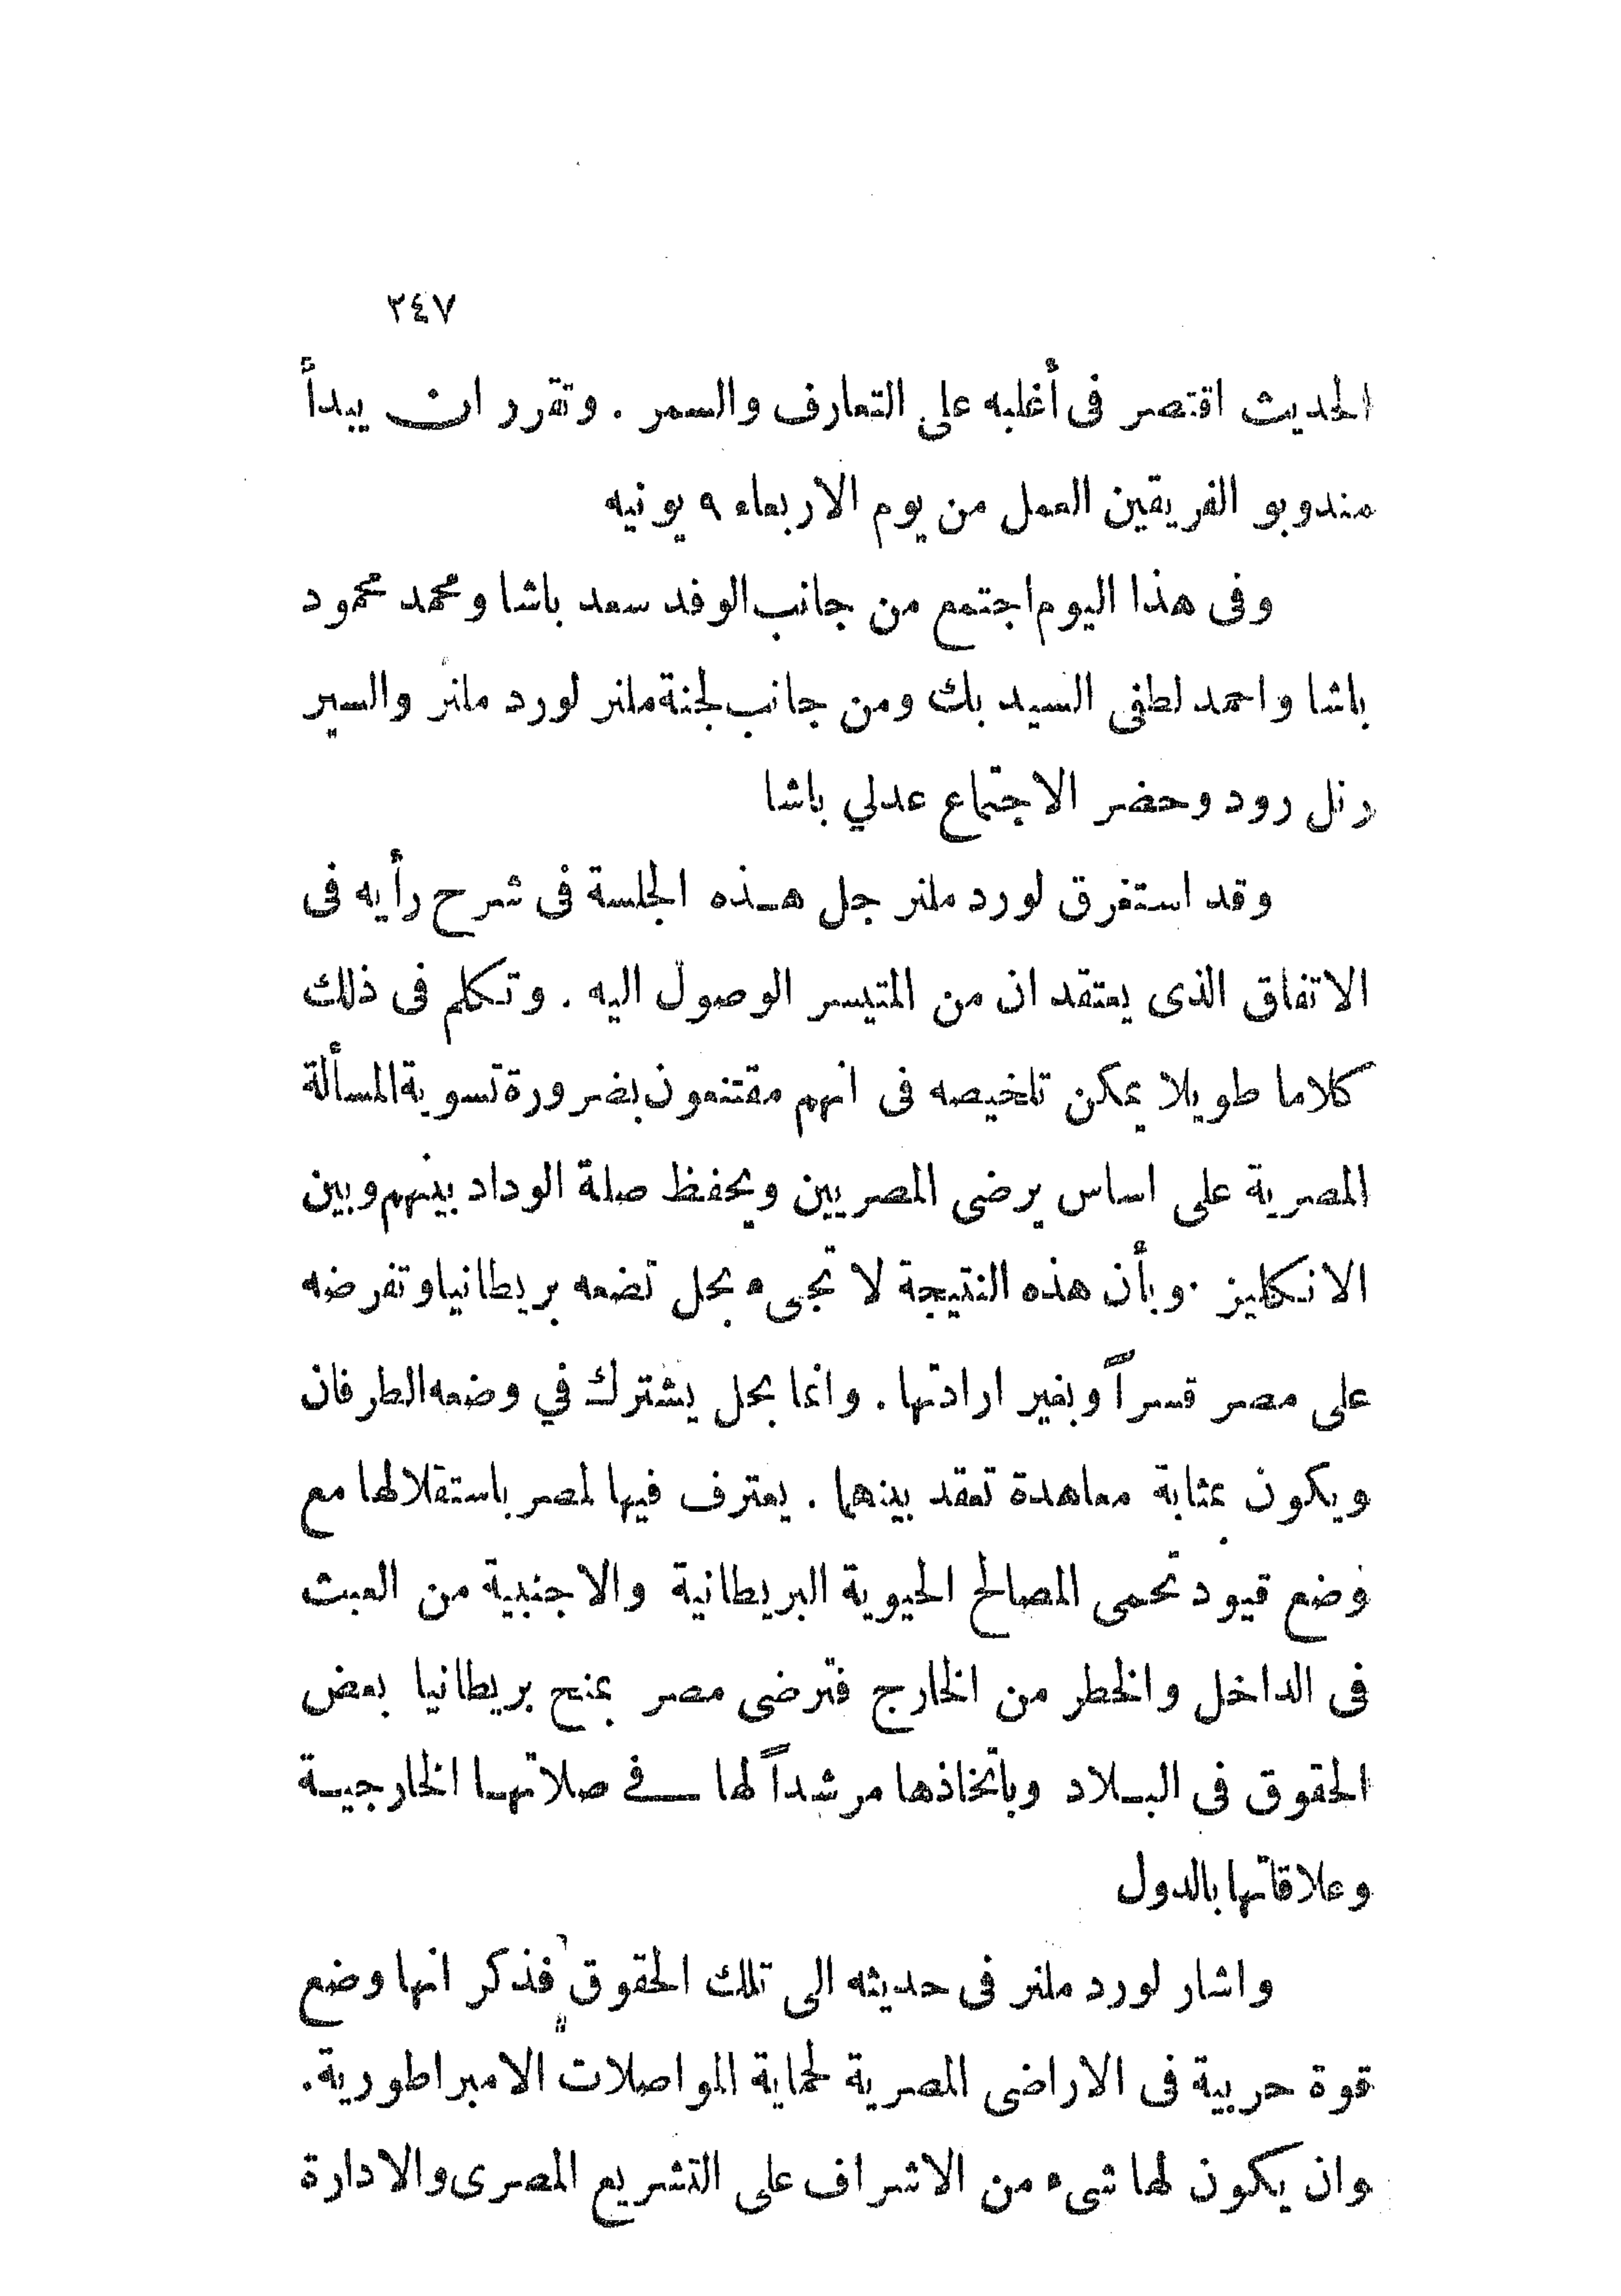 ٢٤٧
الحديث اقتصر فى أغلبه على التعارف والسمر . وتقرر ان يبدأ
مندوبو الفريقين العمل من يوم الاربعاء ٩ يونيه
وفى هذا اليوم اجتمع من جانب الوفد سعد باشا ومحمد محمود
باشا واحمد لطفى السيد بك ومن جانب لجنة ملنر لورد ملنر والسير
رنل رود وحضر الاجتماع عدلي باشا
وقد استغرق لورد ملنر جل هذه الجلسة فى شرح رأيه فى
الاتفاق الذى يعتقد ان من المتيسر الوصول اليه . وتكلم فى ذلك
كلاما طويلا يمكن تلخيصه فى انهم مقتنعون بضرورة تسوية المسألة
المصرية على اساس يرضى المصريين ويحفظ صلة الوداد بينهم وبين
الانكليز . وبأن هذه النتيجة لا تجىء بحل تضعه بريطانيا وتفرضه
على مصر قسراً وبغير ارادتها . وانما بحل يشترك في وضعه الطرفان
ويكون بمثابة معاهدة تعقد بينهما . يعترف فيها لمصر باستقلالها مع
وضع قيود تحمى المصالح الحيوية البريطانية والاجنبية من العبث
فى الداخل والخطر من الخارج فترضى مصر بمنح بريطانيا بعض
الحقوق فى البلاد وباتخاذها مرشداً لها فى صلاتها الخارجية
وعلاقاتها بالدول
واشار لورد ملنر فى حديثه الى تلك الحقوق فذكر انها وضع
قوة حربية فى الاراضى المصرية لحماية المواصلات الامبراطورية .
وان يكون لها شىء من الاشراف على التشريع المصرى والادارة